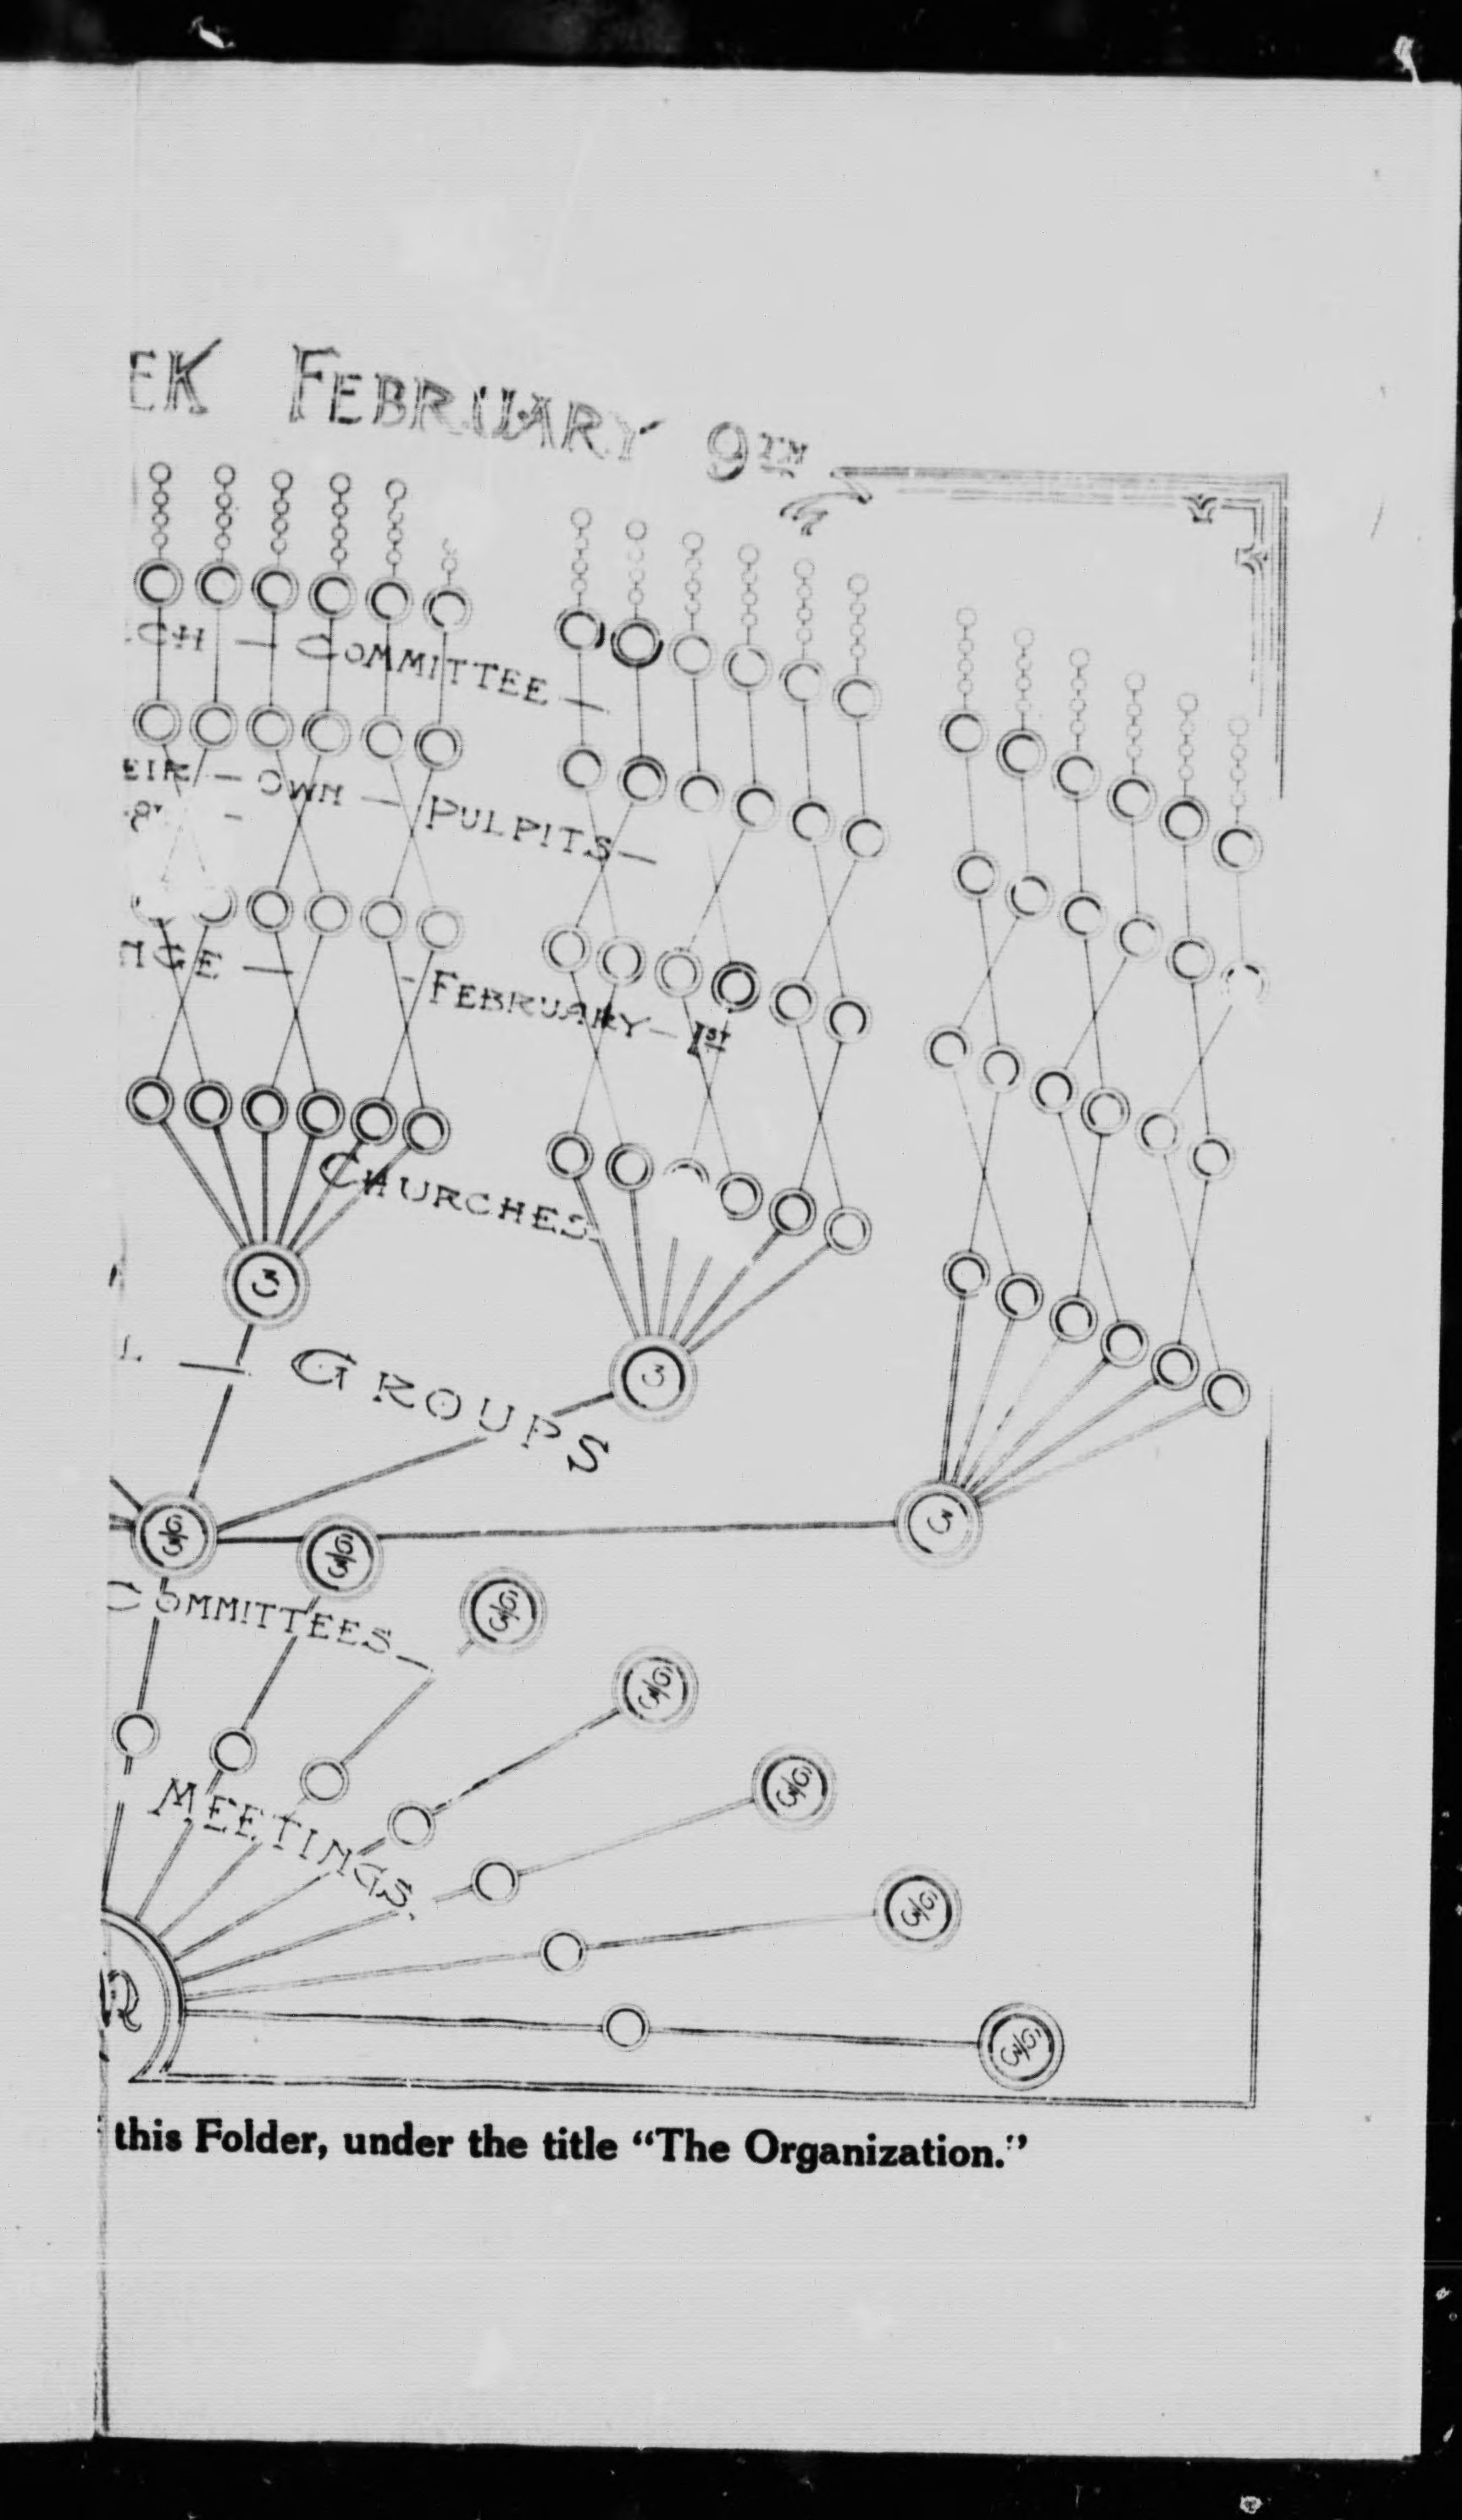 EK FEBRUARY 9TH
CH — COMMITTEE —
EIR — OWN — PULPITS —
NGE — - FEBRUARY — 1ST
CHURCHES-
3
3
L — GROUPS
3
6/3
6/3
6/3
COMMITTEES —
6/3
6/3
MEETINGS.
6/3
R
6/3
this Folder, under the title “The Organization.”